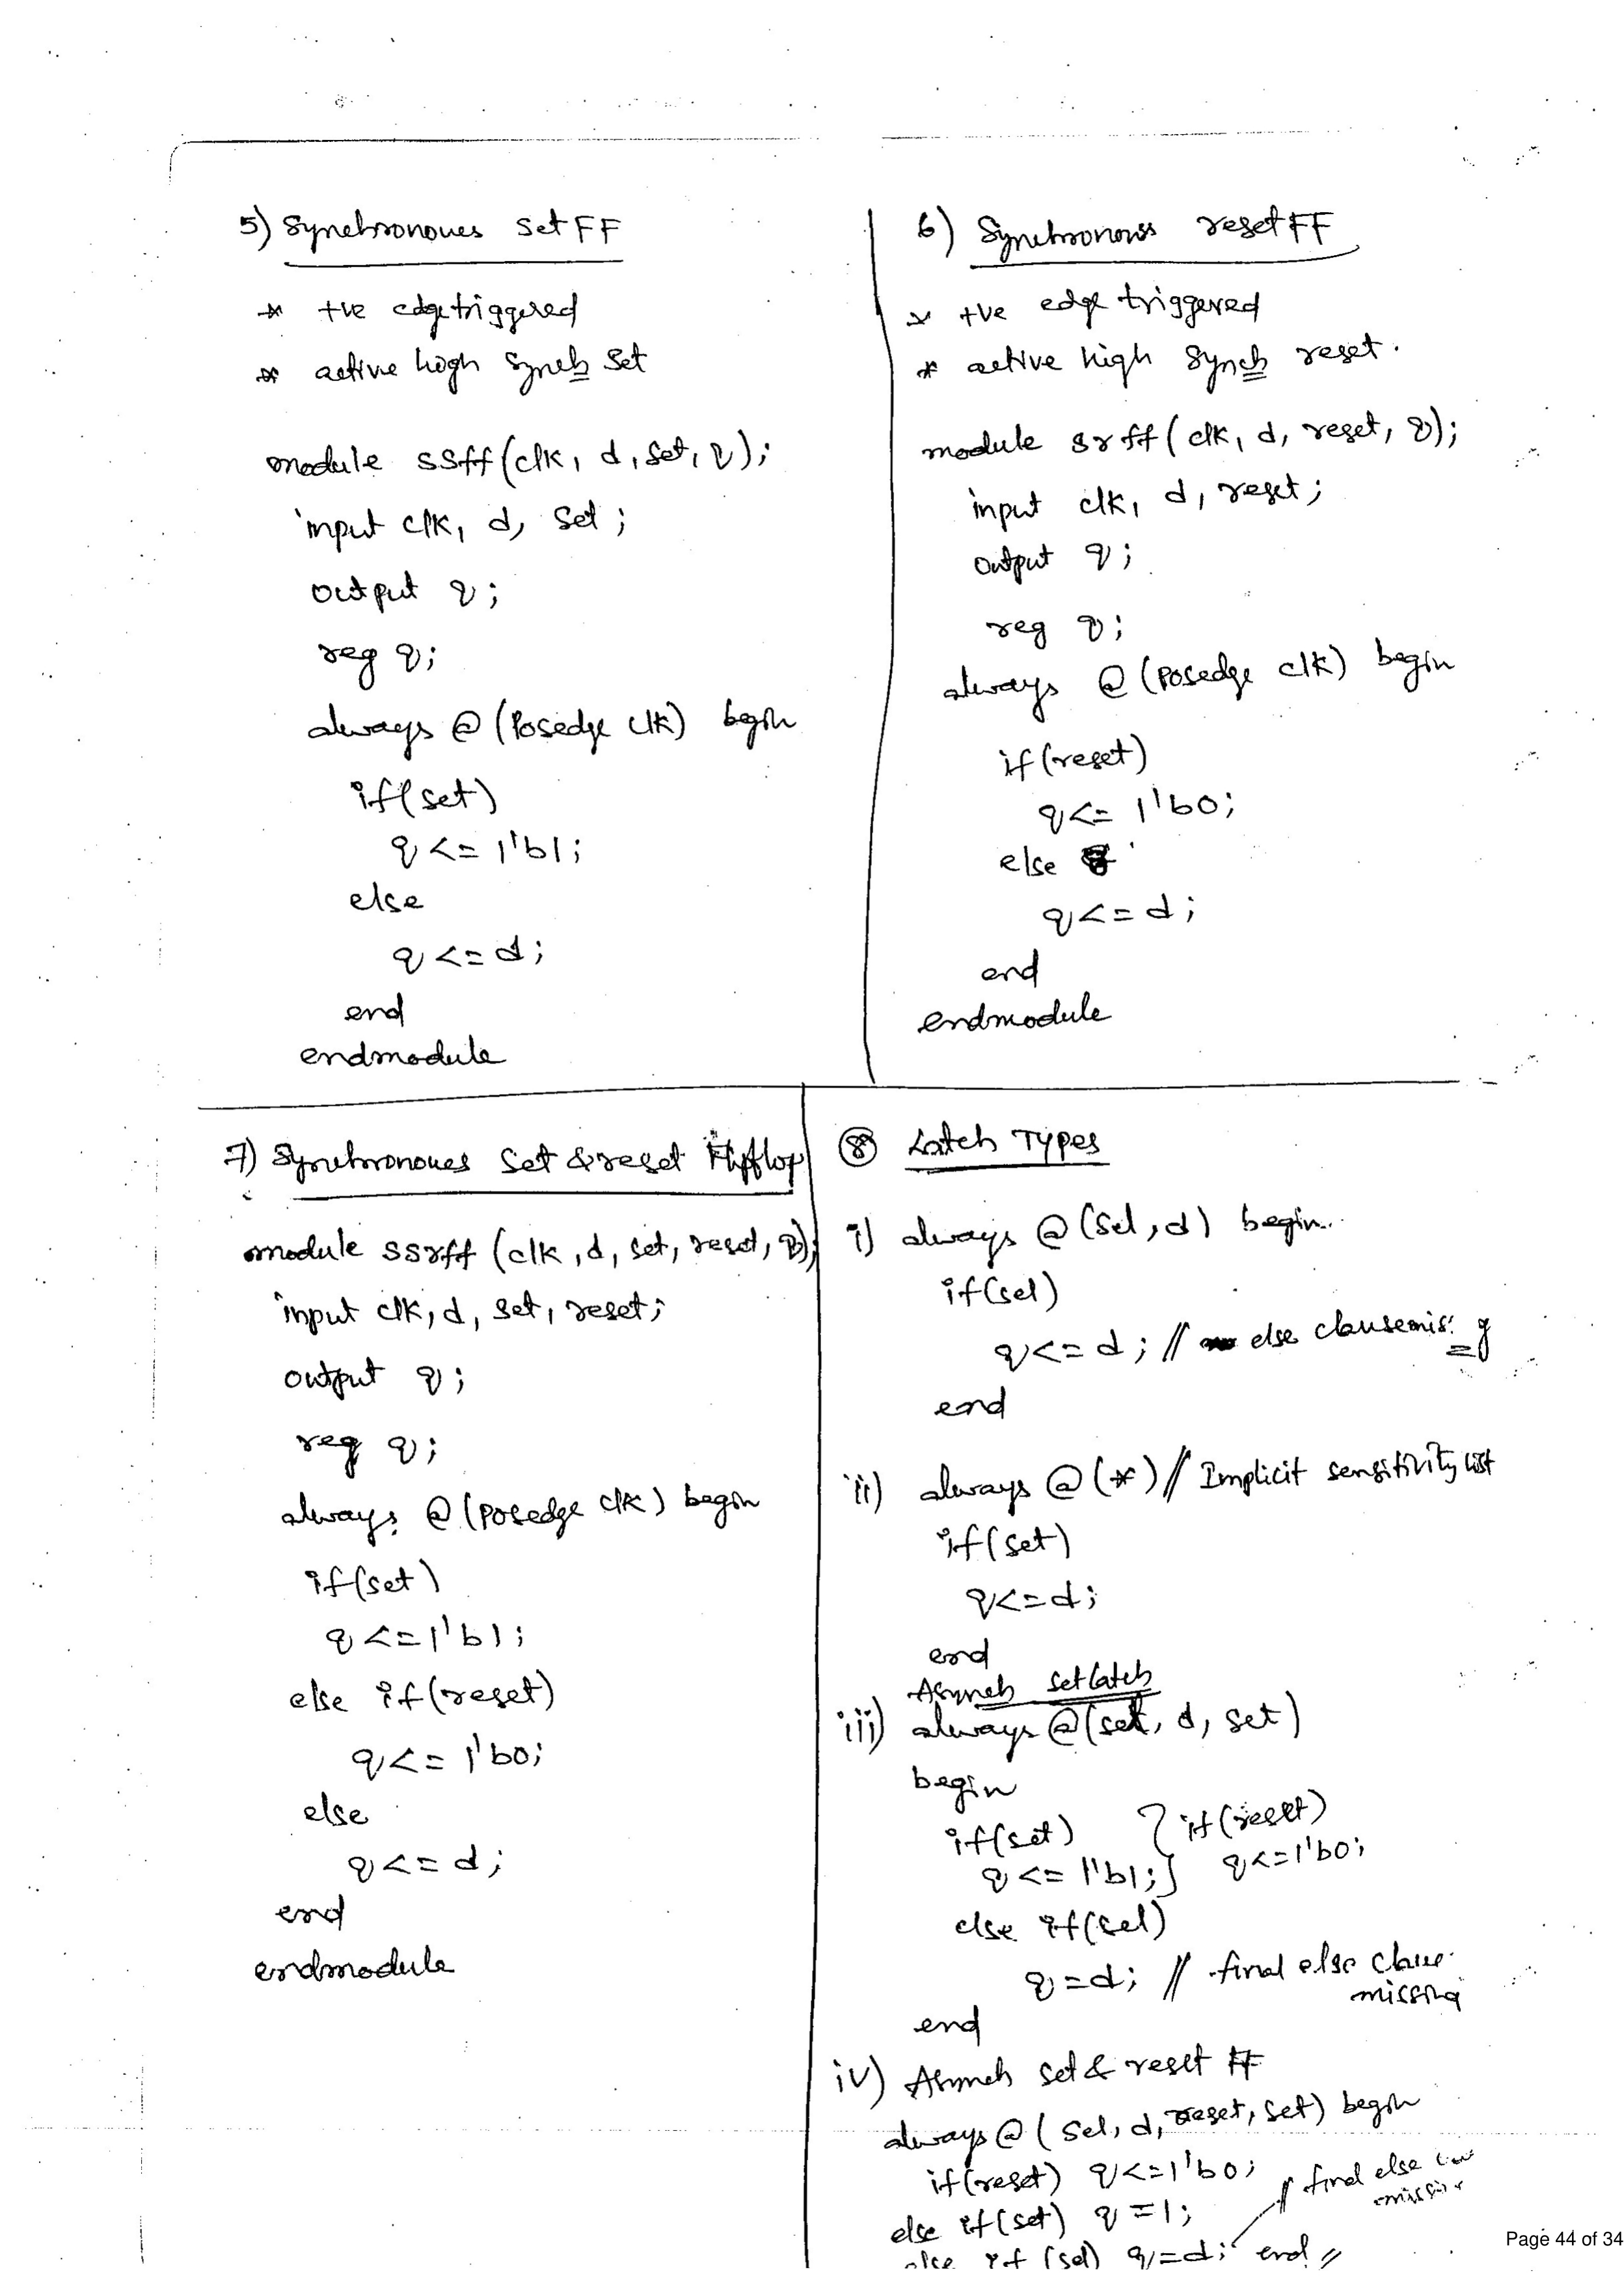 5) Synchronoues set FF
* +ve edge triggered
* active high synch set
module ssff(clk, d, set, q);
input clk, d, set;
output q;
reg q;
always @ (Posedge clk) begin
if(set)
q <= 1'b1;
else
q <= d;
end
endmodule
6) Synchronous reset FF
* +ve edge triggered
* active high synch reset.
module srff(clk, d, reset, q);
input clk, d, reset;
output q;
reg q;
always @ (Posedge clk) begin
if(reset)
q <= 1'b0;
else
q <= d;
end
endmodule
7) Synchronoues Set & reset Flipflop
module ssrff (clk, d, set, reset, q);
input clk, d, set, reset;
output q;
reg q;
always @ (posedge clk) begin
if(set)
q <= 1'b1;
else if(reset)
q <= 1'b0;
else
q <= d;
end
endmodule
8 Latch Types
i) always @ (sel, d) begin
if(sel)
q <= d; // else clause
end
ii) always @ (*) // Implicit sensitivity list
if(set)
q <= d;
end
Asynch set latch
iii) always @ (set, d, set)
begin
if(set) } if(reset)
q <= 1'b1; } q <= 1'b0;
else if(sel)
q = d; // final else clause
missing
end
iv) Asynch set & reset FF
always @ ( sel, d, reset, set) begin
if(reset) q <= 1'b0; // final else
else if(set) q = 1;
else if (sel) q = d; end //
Page 44 of 34